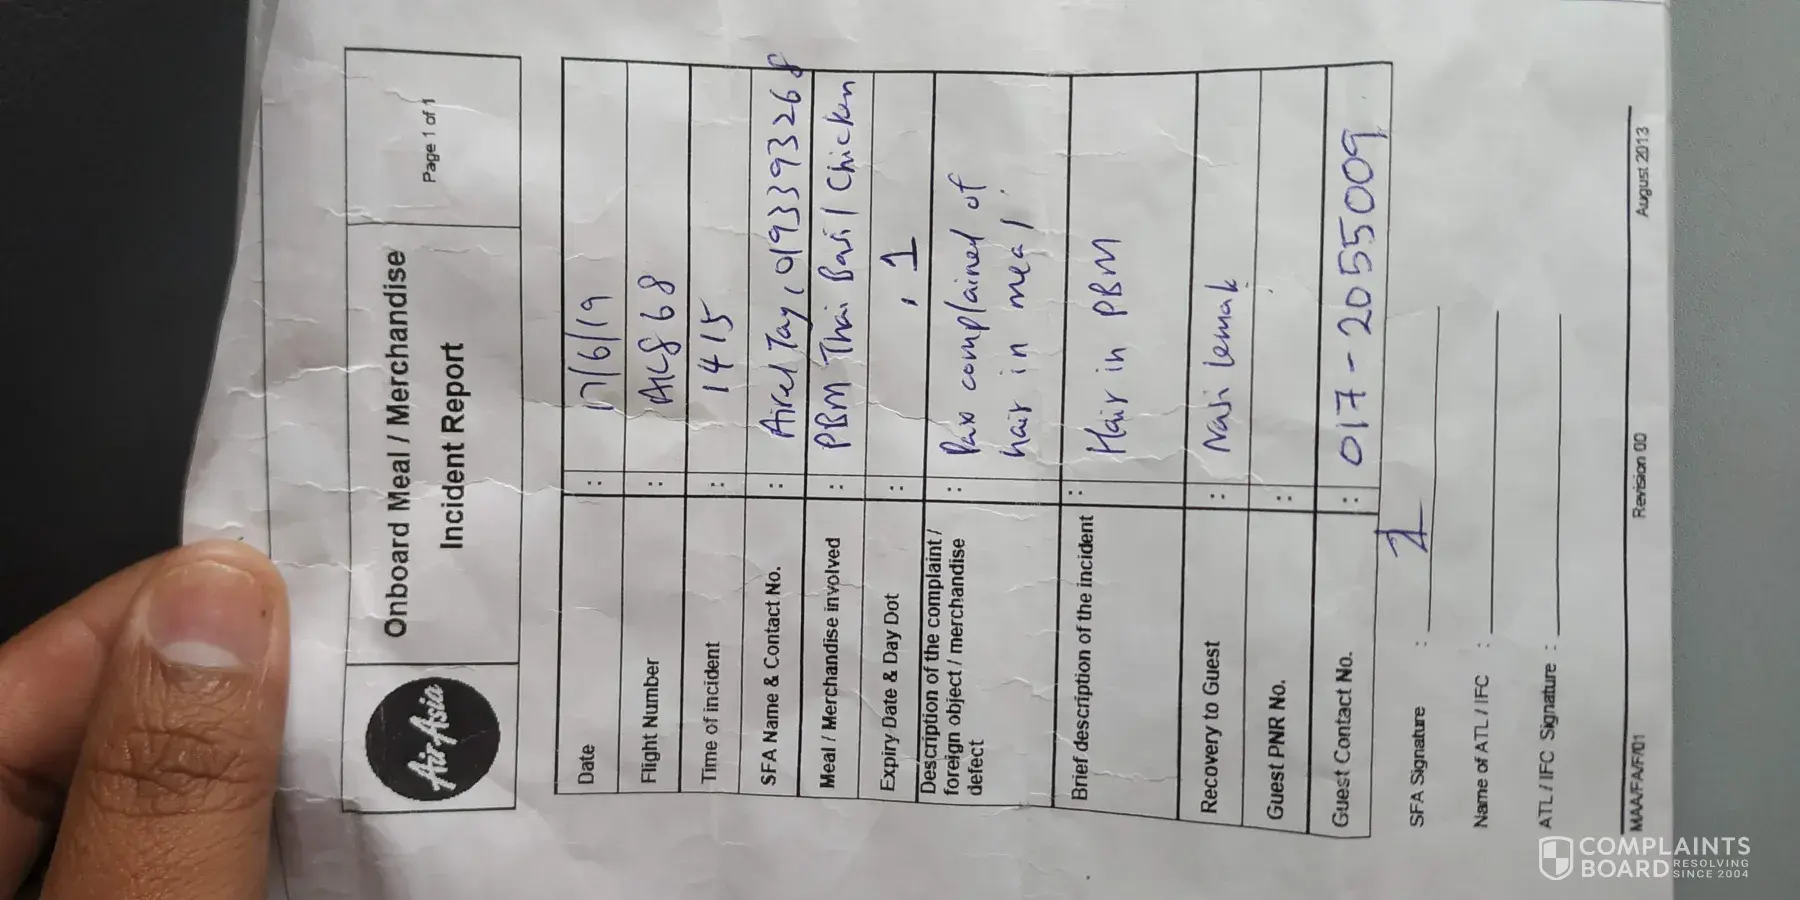 AirAsia
Onboard Meal / Merchandise
Incident Report
Page 1 of 1
Date : 17/6/19
Flight Number : AK868
Time of incident : 1415
SFA Name & Contact No. : Aircel Tay, 0193393268
Meal / Merchandise involved : PBM Thai Basil Chicken
Expiry Date & Day Dot : , 1
Description of the complaint / : Pax complained of
foreign object / merchandise hair in meal.
defect
Brief description of the incident : Hair in PBM
Recovery to Guest : Nasi Lemak
Guest PNR No. :
Guest Contact No. : 017-2055009
SFA Signature :
Name of ATL / IFC :
ATL / IFC Signature :
MAA/FA/F/01 Revision 00 August 2013
COMPLAINTS
BOARD RESOLVING
SINCE 2004